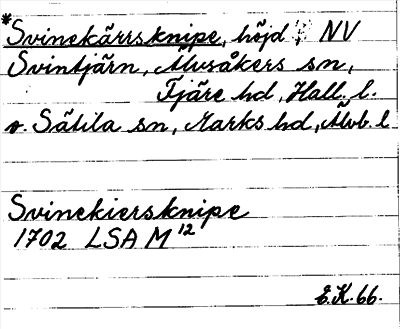 *Svinekärrsknipe, höjd, NV
Svintjärn, Älvsåkers sn,
Fjäre hd, Hall. l.
o. Sätila sn, Marks hd, Älvb. l
Svinekiersknipe
1702 LSA M 12
E.K. 66.